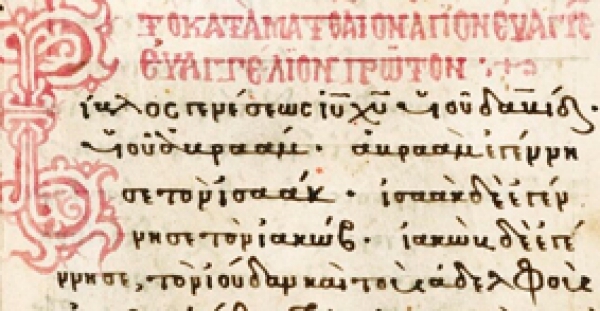 ΤΟ ΚΑΤΑ ΜΑΤΘΑΙΟΝ ΑΓΙΟΝ ΕΥΑΓΓΕ
ΕΥΑΓΓΕΛΙΟΝ ΠΡΩΤΟΝ
Βίβλος γενέσεως ἰῦ χῦ υἱοῦ δαυίδ.
υἱοῦ ἀβραάμ · ἀβραὰμ ἐγέννη
σε τὸν ἰσαάκ · ἰσαὰκ δὲ ἐγέν
νησε τὸν ἰακώβ · ἰακὼβ δὲ ἐγέ
ννησε, τὸν ἰούδαν καὶ τοὺς ἀδελφοὺς